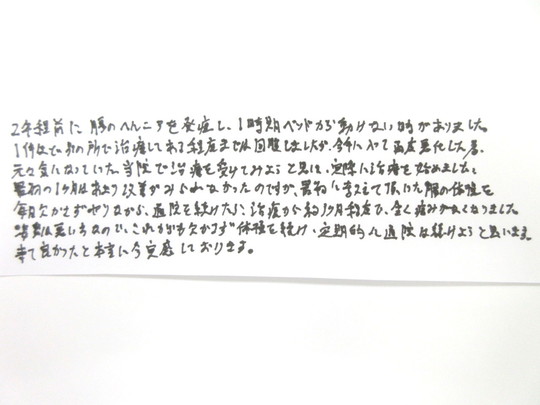 2年程前に腰のヘルニアを発症し、1時期ベッドから動けない時がありました。
1件は別の所で治療してある程度までは回復しましたが、今年に入って再度悪化した為、
元々気になっていた当院で治療を受けてみようと思い、実際に治療を始めました。
最初の1ヶ月はあまり改善がみられなかったのですが、最初に教えて頂いた腰の体操を
毎日欠かさずやりながら、通院を続けたら、治療から約3ヶ月程度で、全く痛みがなくなりました。
姿勢は悪いものなので、これからも欠かさず体操を続け、定期的に通院は続けようと思います。
来て良かったと本当に今実感しております。